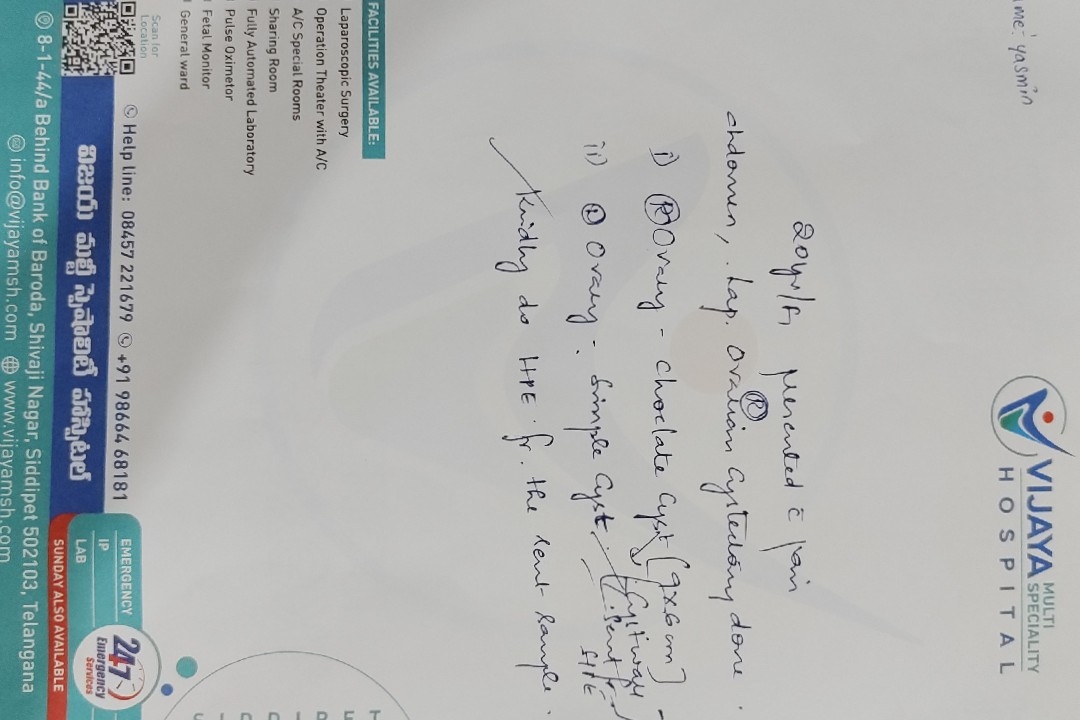 me- yasmin
VIJAYA
MULTI
SPECIALITY
HOSPITAL
20yr/F, presented c̄ pain
abdomen, . Lap. Ovarian Cystectomy done.
(R)
i) (R) Ovary - choclate Cyst [9x6cm]
Cyst wall
ii) (L) Ovary - Simple Cyst
Sent
HPE
Kindly do HPE. fr. the sent sample.
FACILITIES AVAILABLE:
Laparoscopic Surgery
Operation Theater with A/C
A/C Special Rooms
Sharing Room
Fully Automated Laboratory
Pulse Oximetor
Fetal Monitor
General ward
Scan for
Location
Help line: 08457 221679 +91 98664 68181
విజయ మల్టీ స్పెషాలిటీ హాస్పిటల్
8-1-44/a Behind Bank of Baroda, Shivaji Nagar, Siddipet 502103, Telangana
info@vijayamsh.com www.vijayamsh.com
EMERGENCY
IP
LAB
SUNDAY ALSO AVAILABLE
24/7
Emergency
Services